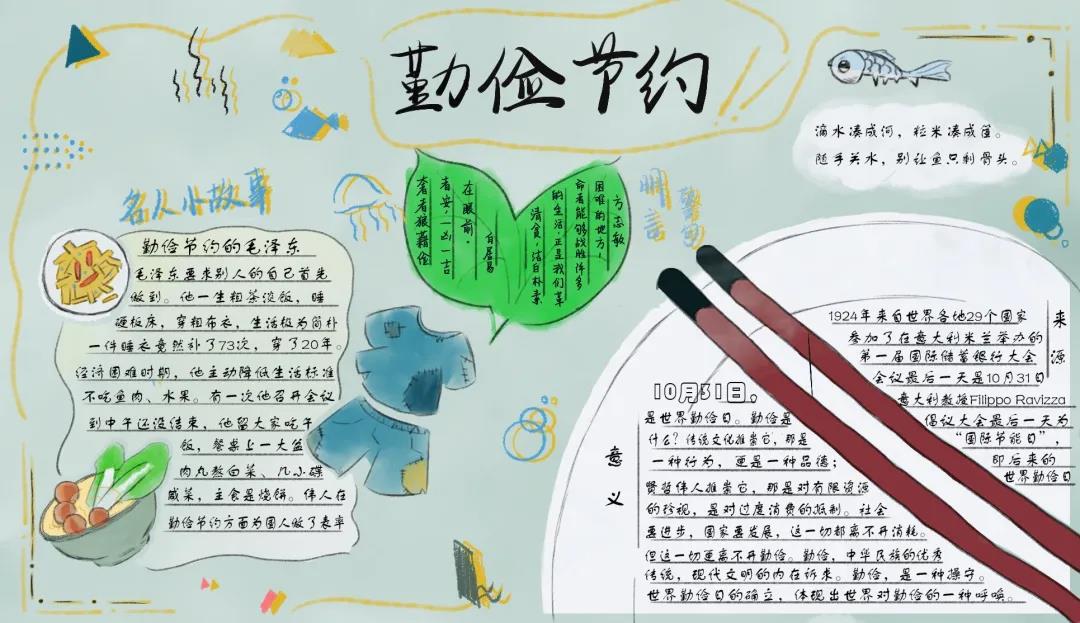 勤俭节约
滴水凑成河，粒米凑成筐。
随手关水，别让鱼只剩骨头。
名人小故事
勤俭节约的毛泽东
毛泽东要求别人的自己首先
做到。他一生粗茶淡饭，睡
硬板床，穿粗布衣，生活极为简朴
一件睡衣竟然补了73次，穿了20年。
经济困难时期，他主动降低生活标准
不吃鱼肉、水果。有一次他召开会议
到中午还没结束，他留大家吃午
饭，餐桌上一大盆
肉丸熬白菜、几小碟
咸菜，主食是烧饼。伟人在
勤俭节约方面为国人做了表率
奢者狼藉俭
者安，一凶一吉
在眼前。
白居易
清贫，洁白朴素
的生活，正是我们革
命者能够战胜许多
困难的地方。
方志敏
明言
警句
来源
1924年来自世界各地29个国家
参加了在意大利米兰举办的
第一届国际储蓄银行大会
会议最后一天是10月31日
意大利教授Filippo Ravizza
倡议大会最后一天为
“国际节能日”，
即后来的
世界勤俭日
意义
10月31日，
是世界勤俭日。勤俭是
什么？传统文化推崇它，那是
一种行为，更是一种品德；
贤哲伟人推崇它，那是对有限资源
的珍视，是对过度消费的抵制。社会
要进步，国家要发展，这一切都离不开消耗。
但这一切更离不开勤俭。勤俭，中华民族的优秀
传统，现代文明的内在诉求。勤俭，是一种操守。
世界勤俭日的确立，体现出世界对勤俭的一种呼唤。